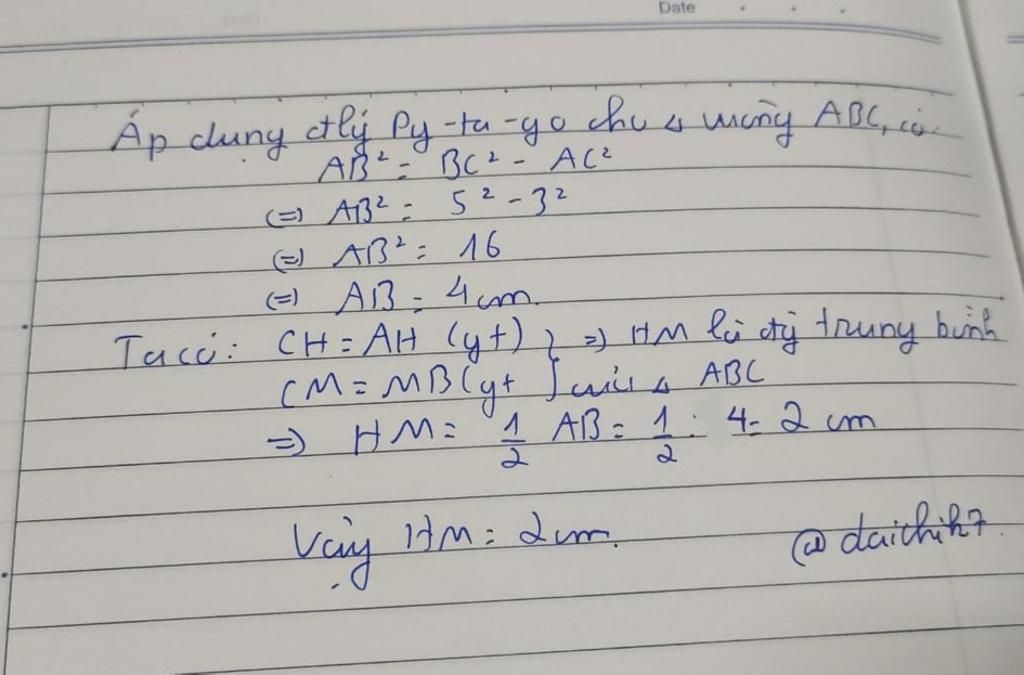 Date
Áp dụng đlý Py-ta-go cho Δ vuông ABC, có:
AB² = BC² - AC²
(=) AB² = 5² - 3²
(=) AB² = 16
(=) AB = 4cm.
Ta có: CH = AH (gt) } => HM là đg trung bình
CM = MB (gt } của Δ ABC
=> HM = 1/2 AB = 1/2 . 4 = 2 cm
Vậy HM = 2cm. @daichih7.